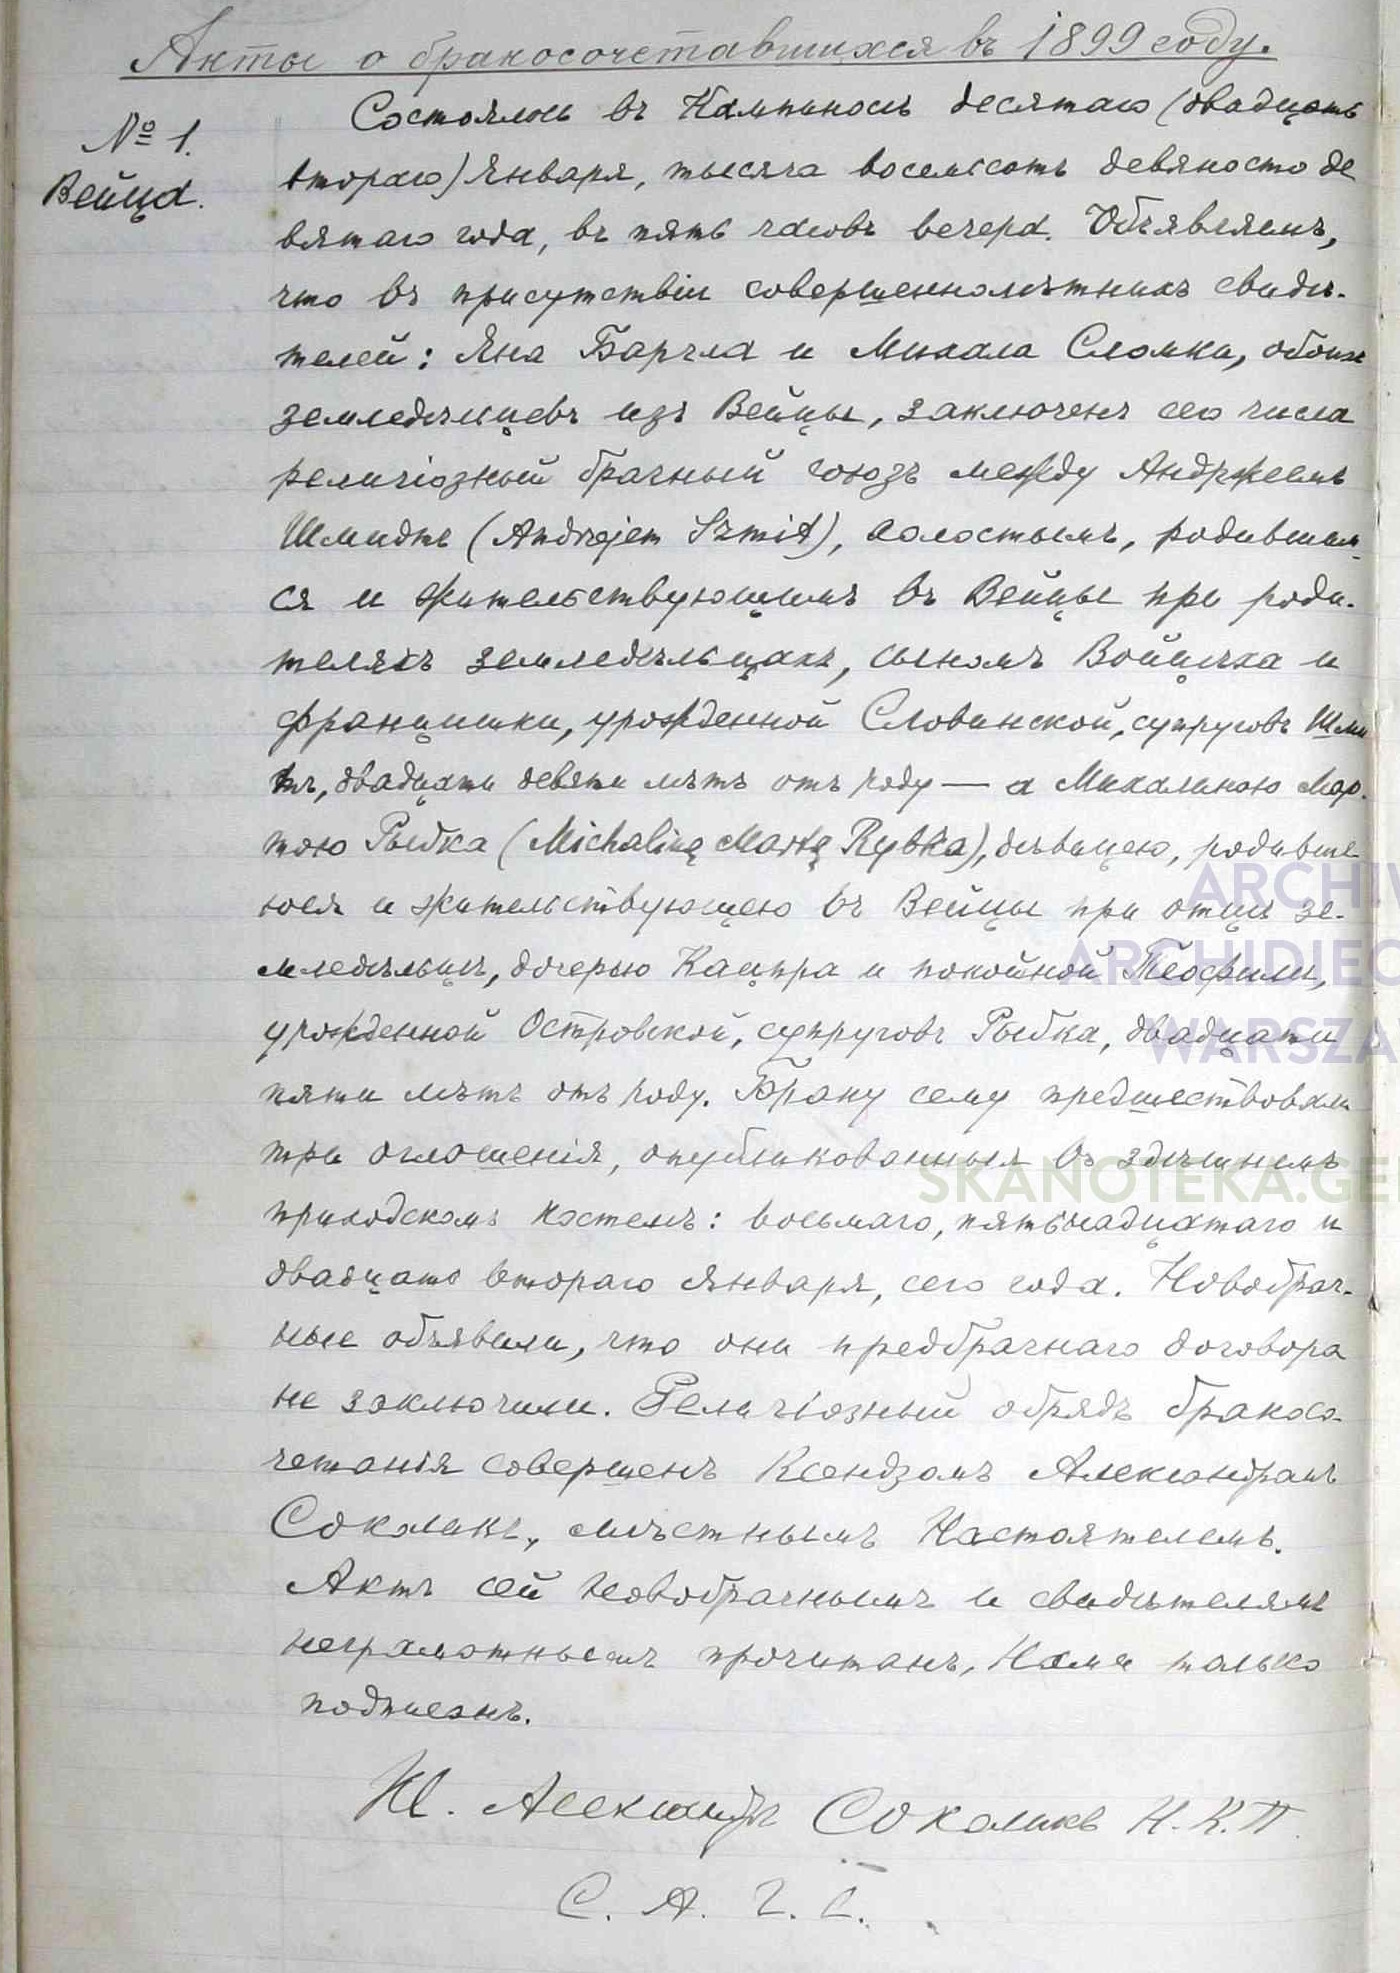 Акты о бракосочетавшихся въ 1899 году.
№ 1.
Вейца.
Состоялось въ Кампиносъ десятаго (двадцать
втораго) Января, тысяча восемсотъ девяносто де
вятаго года, въ пять часовъ вечера. Объявляемъ,
что въ присутствіи совершеннолѣтнихъ свидѣ-
телей: Яна Барчла и Михала Сломки, обоихъ
земледѣльцевъ изъ Вейцы, заключенъ сего числа
религіозный брачный союзъ между Андржеемъ
Шмидтъ (Andrzejem Szmit), холостымъ, родившим-
ся и жительствующимъ въ Вейцы при роди-
теляхъ земледѣльцахъ, сыномъ Войцѣха и
Францишки, урожденной Словинской, супруговъ Шми
тъ, двадцати девяти лѣтъ отъ роду — а Михалиною Мар-
тою Рыбка (Michaliną Martą Rybka), дѣвицею, родивше
юся и жительствующею въ Вейцы при отцѣ зе-
мледѣльцѣ, дочерью Кацпра и покойной Теофили,
урожденной Островской, супруговъ Рыбка, двадцати
пяти лѣтъ отъ роду. Браку сему предшествовали
три оглошенія, опубликованныя въ здѣшнемъ
приходскомъ костелѣ: восьмаго, пятьнадцатаго и
двадцать втораго Января, сего года. Новобрач-
ные объявили, что они предбрачнаго договора
не заключили. Религіозный обрядъ бракосо-
четанія совершенъ Ксендзомъ Александромъ
Соколикъ, мѣстнымъ Настоятелемъ.
Актъ сей Новобрачнымъ и свидѣтелямъ
неграмотнымъ прочитанъ, Нами только
подписанъ.
Кс. Александръ Соколикъ Н.К.П.
С. А. Г. С.
ARCHIW
ARCHIDIEC
WARSZA
SKANOTEKA.GE